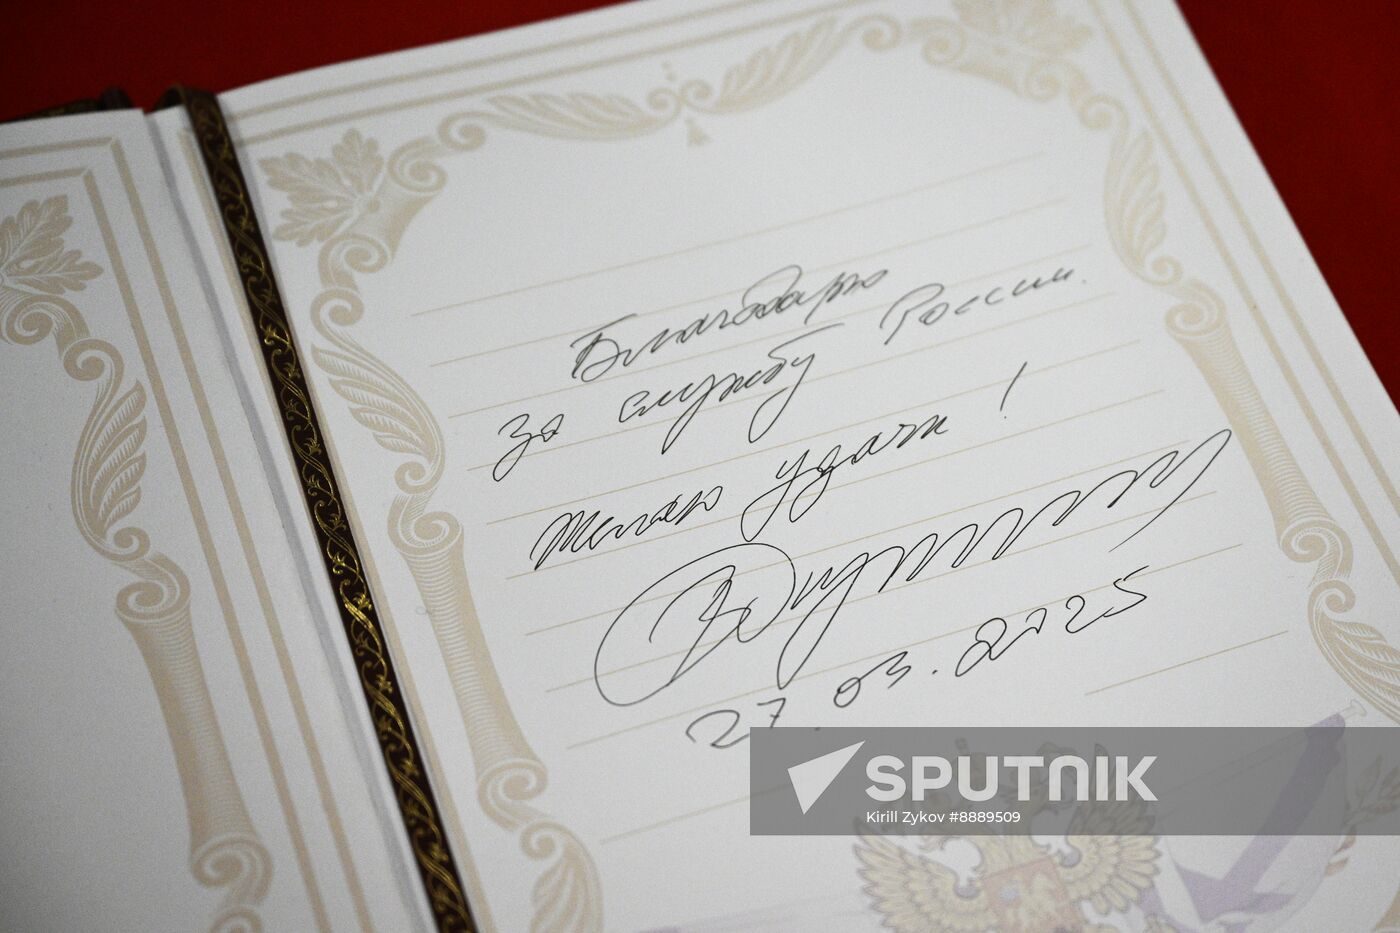 Благодарю
за службу России.
Желаю удачи!
27.03.2025
SPUTNIK
Kirill Zykov #8889509